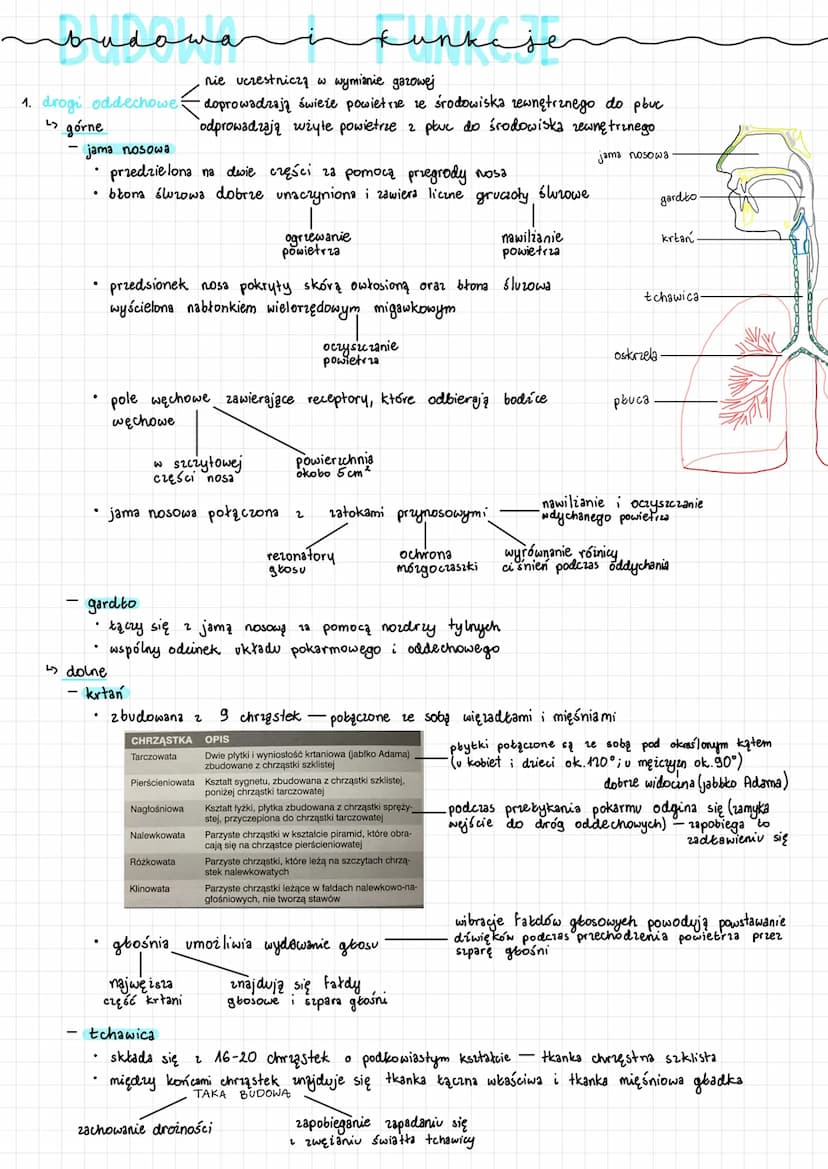 BUDOWA I FUNKCJE
budowa i funkcje
nie uczestniczą w wymianie gazowej
1. drogi oddechowe doprowadzają świeże powietrze ze środowiska zewnętrznego do płuc
odprowadzają zużyte powietrze z płuc do środowiska zewnętrznego
↳ górne
- jama nosowa
• przedzielona na dwie części za pomocą przegrody nosa
• błona śluzowa dobrze unaczyniona i zawiera liczne gruczoły śluzowe
ogrzewanie
powietrza
nawilżanie
powietrza
• przedsionek nosa pokryty skórą owłosioną oraz błona śluzowa
wyścielona nabłonkiem wielorzędowym migawkowym
oczyszczanie
powietrza
• pole węchowe zawierające receptory, które odbierają bodźce
węchowe
w szczytowej
części nosa
powierzchnia
około 5 cm²
jama nosowa
gardło
krtań
tchawica
oskrzela
płuca
• jama nosowa połączona z zatokami przynosowymi
nawilżanie i oczyszczanie
wdychanego powietrza
rezonatory
głosu
ochrona
mózgoczaszki
wyrównanie różnicy
ciśnień podczas oddychania
- gardło
• łączy się z jamą nosową za pomocą nozdrzy tylnych
• wspólny odcinek układu pokarmowego i oddechowego
↳ dolne
- krtań
• zbudowana z 9 chrząstek — połączone ze sobą więzadłami i mięśniami
CHRZĄSTKA OPIS
Tarczowata Dwie płytki i wyniosłość krtaniowa (jabłko Adama)
zbudowane z chrząstki szklistej
Pierścieniowata Kształt sygnetu, zbudowana z chrząstki szklistej,
poniżej chrząstki tarczowatej
Nagłośniowa Kształt łyżki, płytka zbudowana z chrząstki spręży-
stej, przyczepiona do chrząstki tarczowatej
Nalewkowata Parzyste chrząstki w kształcie piramid, które obra-
cają się na chrząstce pierścieniowatej
Różkowata Parzyste chrząstki, które leżą na szczytach chrzą-
stek nalewkowatych
Klinowata Parzyste chrząstki leżące w fałdach nalewkowo-na-
głośniowych, nie tworzą stawów
płytki połączone są ze sobą pod określonym kątem
(u kobiet i dzieci ok. 120°; u mężczyzn ok. 90°)
dobrze widoczna (jabłko Adama)
podczas przełykania pokarmu odgina się (zamyka
wejście do dróg oddechowych) — zapobiega to
zadławieniu się
• głośnia umożliwia wydawanie głosu
wibracje fałdów głosowych powodują powstawanie
dźwięków podczas przechodzenia powietrza przez
szparę głośni
najwęższa
część krtani
znajdują się fałdy
głosowe i szpara głośni
- tchawica
• składa się z 16-20 chrząstek o podkowiastym kształcie — tkanka chrzęstna szklista
• między końcami chrząstek znajduje się tkanka łączna właściwa i tkanka mięśniowa gładka
TAKA BUDOWA
zachowanie drożności
zapobieganie zapadaniu się
i zwężaniu światła tchawicy